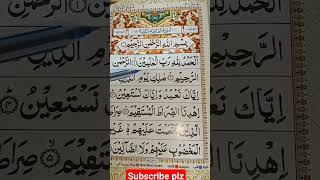 بِسْمِ اللهِ الرَّحْمٰنِ الرَّحِيْمِ
اَلْحَمْدُ لِلّٰهِ رَبِّ الْعٰلَمِيْنَ ۝ الرَّحْمٰنِ
الرَّحِيْمِ ۝ مٰلِكِ يَوْمِ الدِّيْنِ
اِيَّاكَ نَعْبُدُ وَاِيَّاكَ نَسْتَعِيْنُ
اِهْدِنَا الصِّرَاطَ الْمُسْتَقِيْمَ صِرَاطَ
الَّذِيْنَ اَنْعَمْتَ عَلَيْهِمْ غَيْرِ
الْمَغْضُوْبِ عَلَيْهِمْ وَلَا الضَّآلِّيْنَ
الرَّحْمٰنِ
الدِّيْنِ
نَسْتَعِيْنُ
صِرَاطَ
Subscribe plz